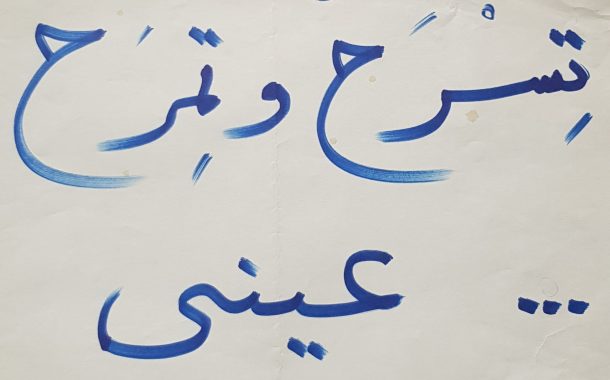 تِسْرَح وتِمرَح
... عينى